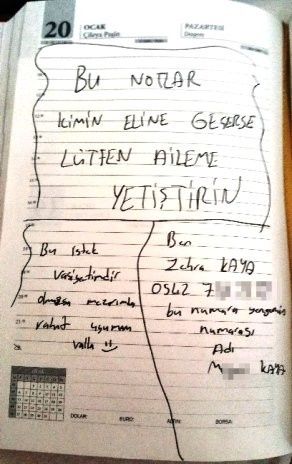 20 OCAK PAZARTESİ
BU NOTLAR
KİMİN ELİNE GEÇERSE
LÜTFEN AİLEME
YETİŞTİRİN
Bu istek
vasiyetimdir
olmazsa mezarımda
rahat uyumam
valla
Ben
Zehra KAYA
0542 7
bu numara yengemin
numarası
Adı
M KAYA
DOLAR: EURO: ALTIN: BORSA: